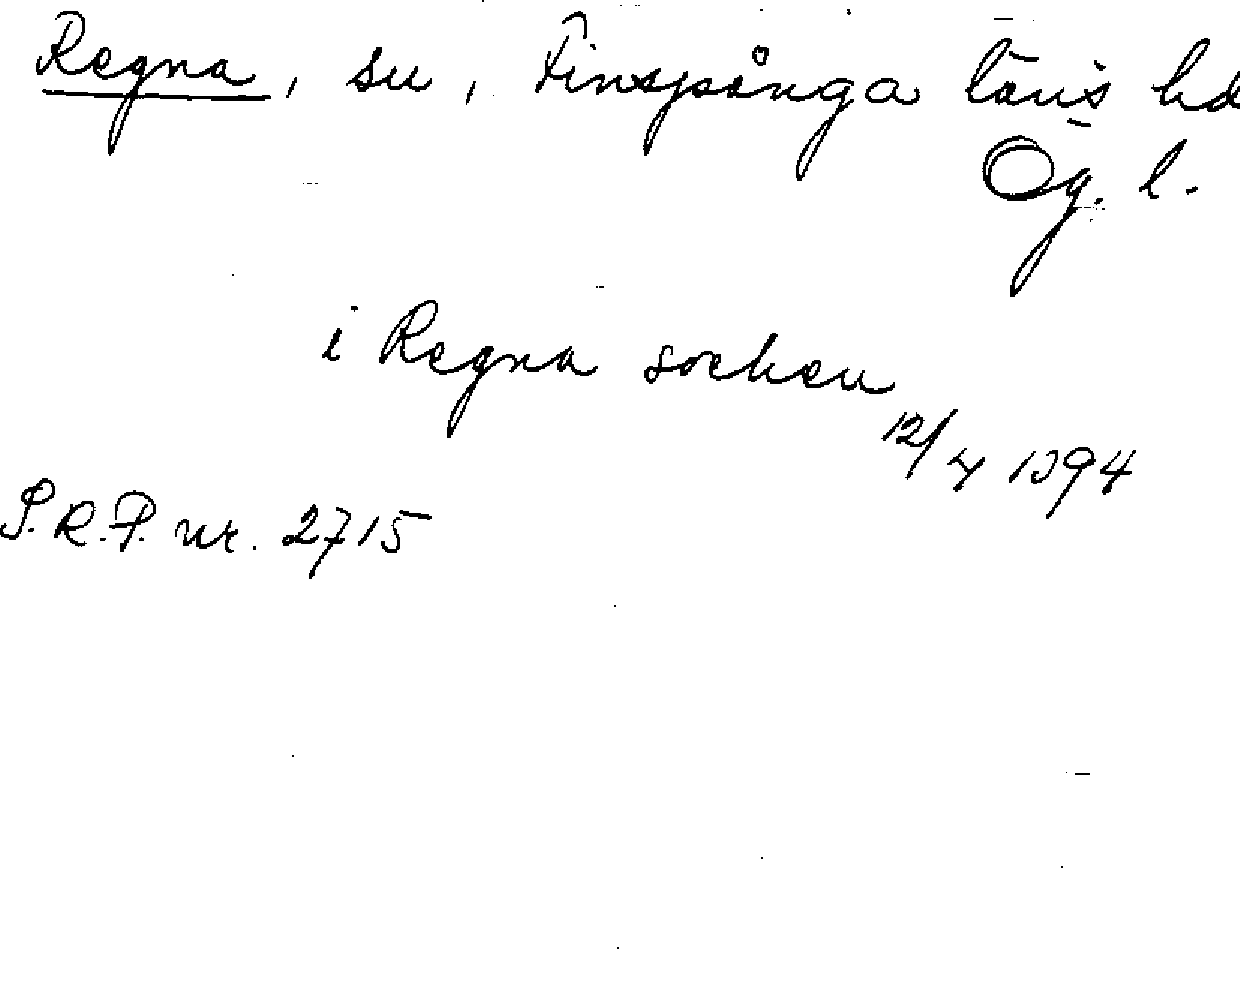 Regna, sn, Finspånga läns hd
Ög. l.
i Regna socken
12/4 1394
S.R.P. nr. 2715